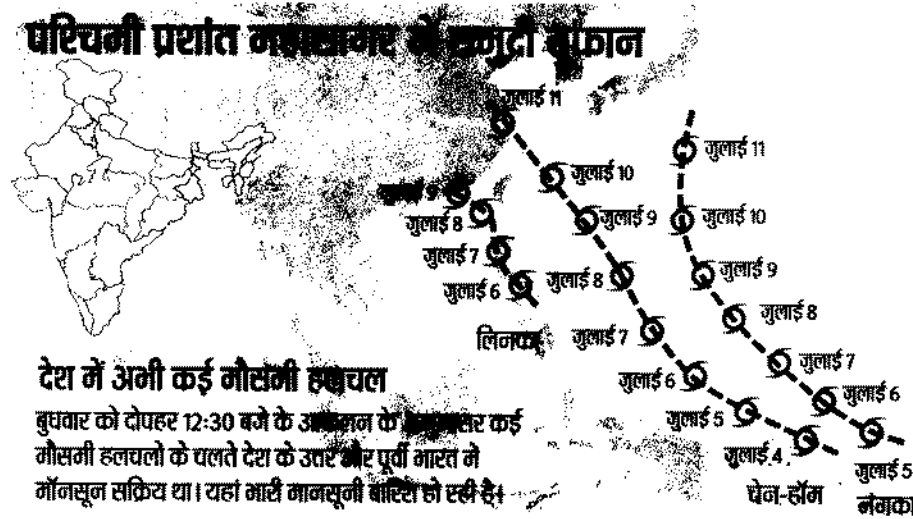 पश्चिमी प्रशांत महासागर में समुद्री तूफान
जुलाई 11
जुलाई 10
जुलाई 9
जुलाई 8
जुलाई 7
जुलाई 6
जुलाई 5
जुलाई 4
चेन-हॉम
जुलाई 9
जुलाई 8
जुलाई 7
जुलाई 6
लिनफा
जुलाई 11
जुलाई 10
जुलाई 9
जुलाई 8
जुलाई 7
जुलाई 6
जुलाई 5
नंगका
देश में अभी कई मौसमी हलचल
बुधवार को दोपहर 12:30 बजे के आकलन के अनुसार कई
मौसमी हलचलों के चलते देश के उत्तर और पूर्वी भारत में
मॉनसून सक्रिय था। यहां भारी मानसूनी बारिश हो रही है।